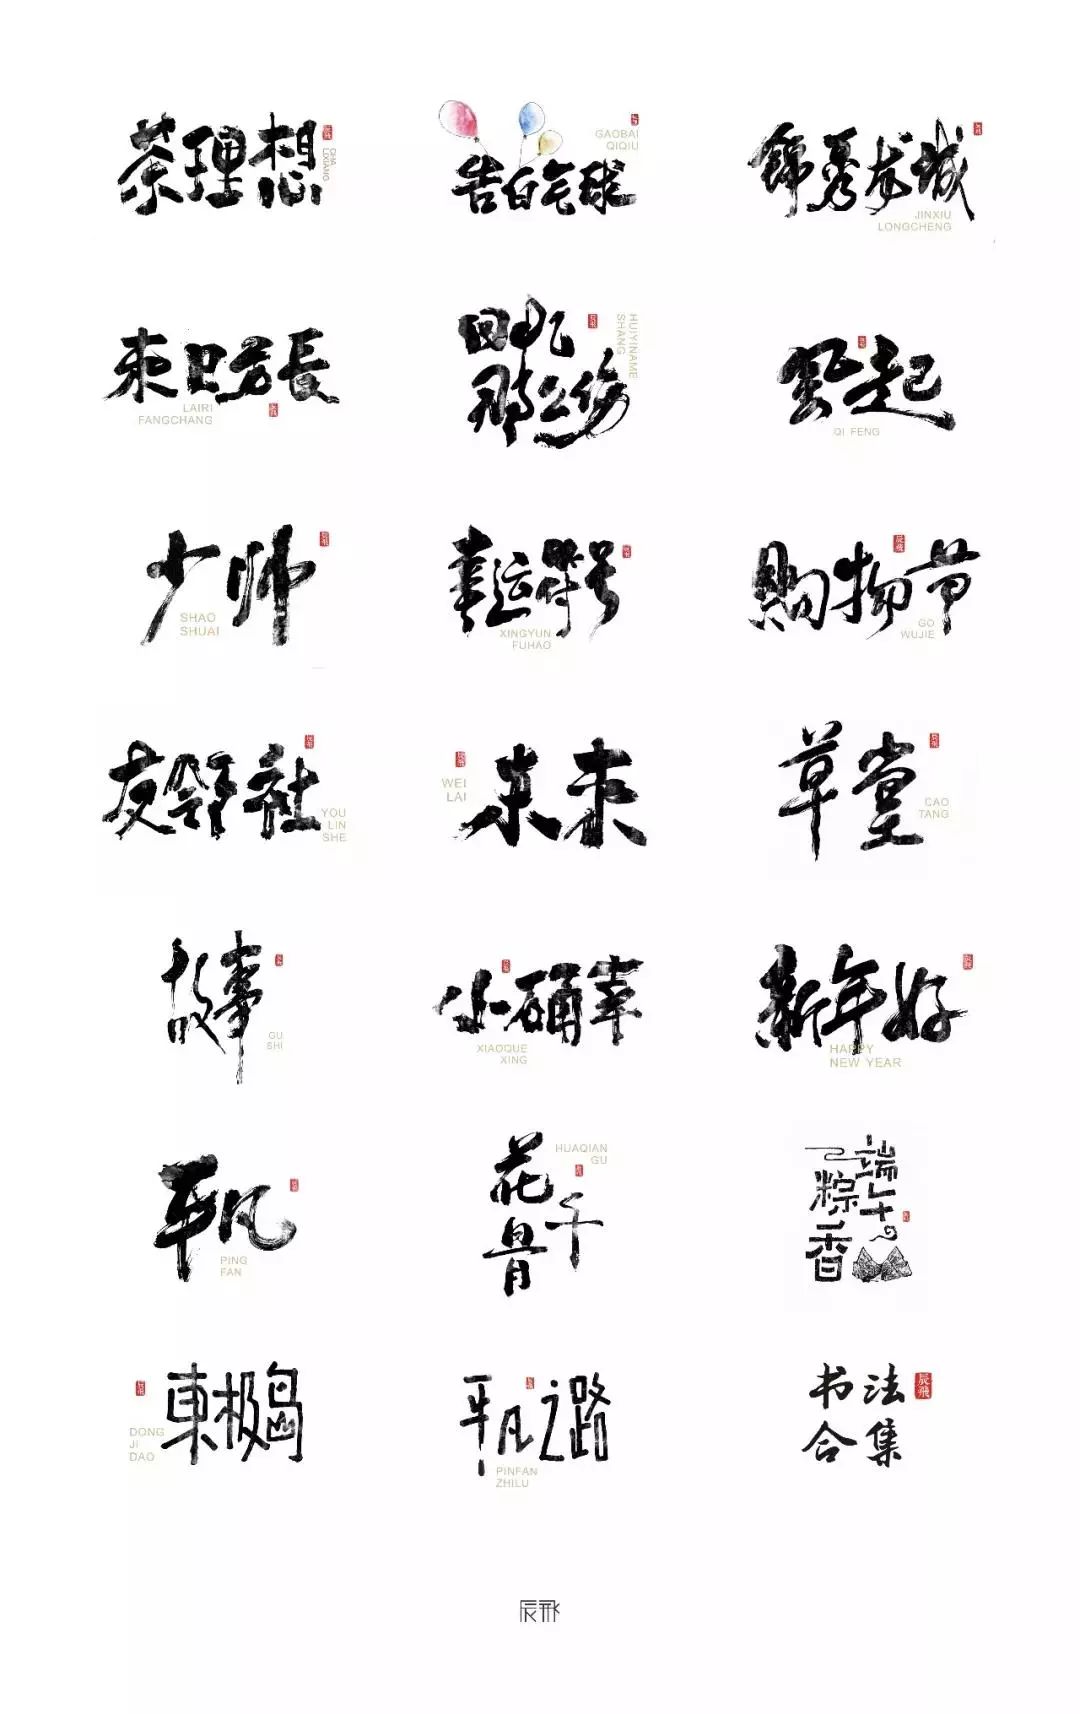 茶理想
CHA
LIXIANG
告白气球
GAOBAI
QIQIU
錦秀龙城
JINXIU
LONGCHENG
来日方長
LAIRI
FANGCHANG
回忆
那么伤
HUIYINAME
SHANG
风起
QI FENG
少帅
SHAO
SHUAI
幸运符号
XINGYUN
FUHAO
購物节
GO
WUJIE
友邻社
YOU
LIN
SHE
未来
WEI
LAI
草堂
CAO
TANG
故事
GU
SHI
小确幸
XIAOQUE
XING
新年好
HAPPY
NEW YEAR
平凡
PING
FAN
花千骨
HUAQIAN
GU
端午
粽香
東极岛
DONG
JI
DAO
平凡之路
PINFAN
ZHILU
书法
合集
辰飛
辰飛